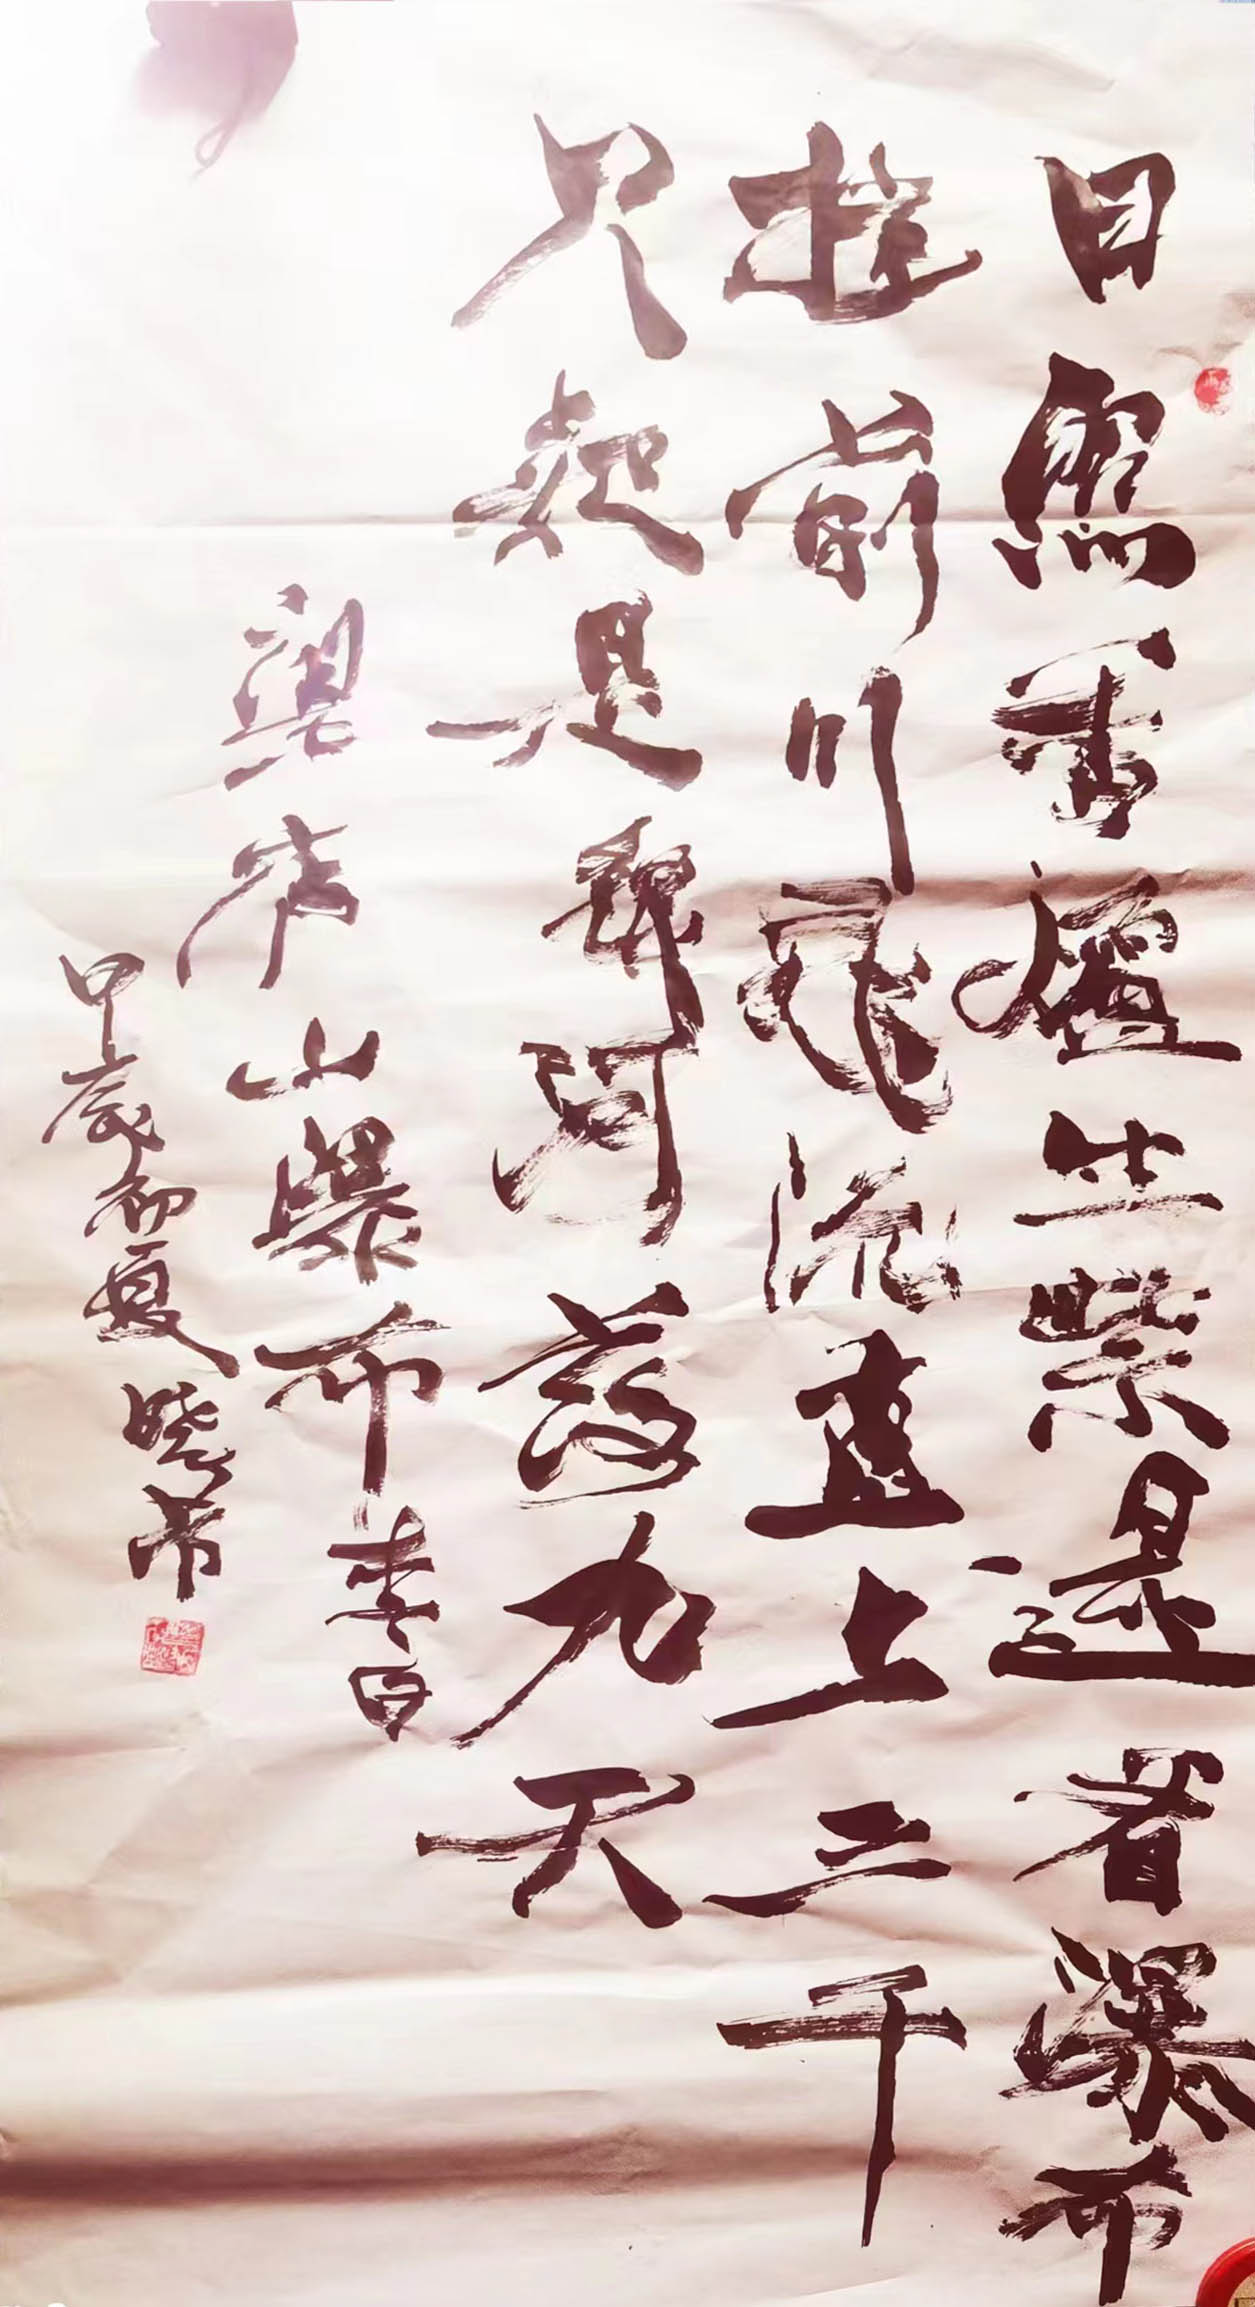 日照香爐生紫看瀑布
挂前川飛流直上三千
尺疑是銀河落九天
望廬山瀑布李白
甲辰初夏曉